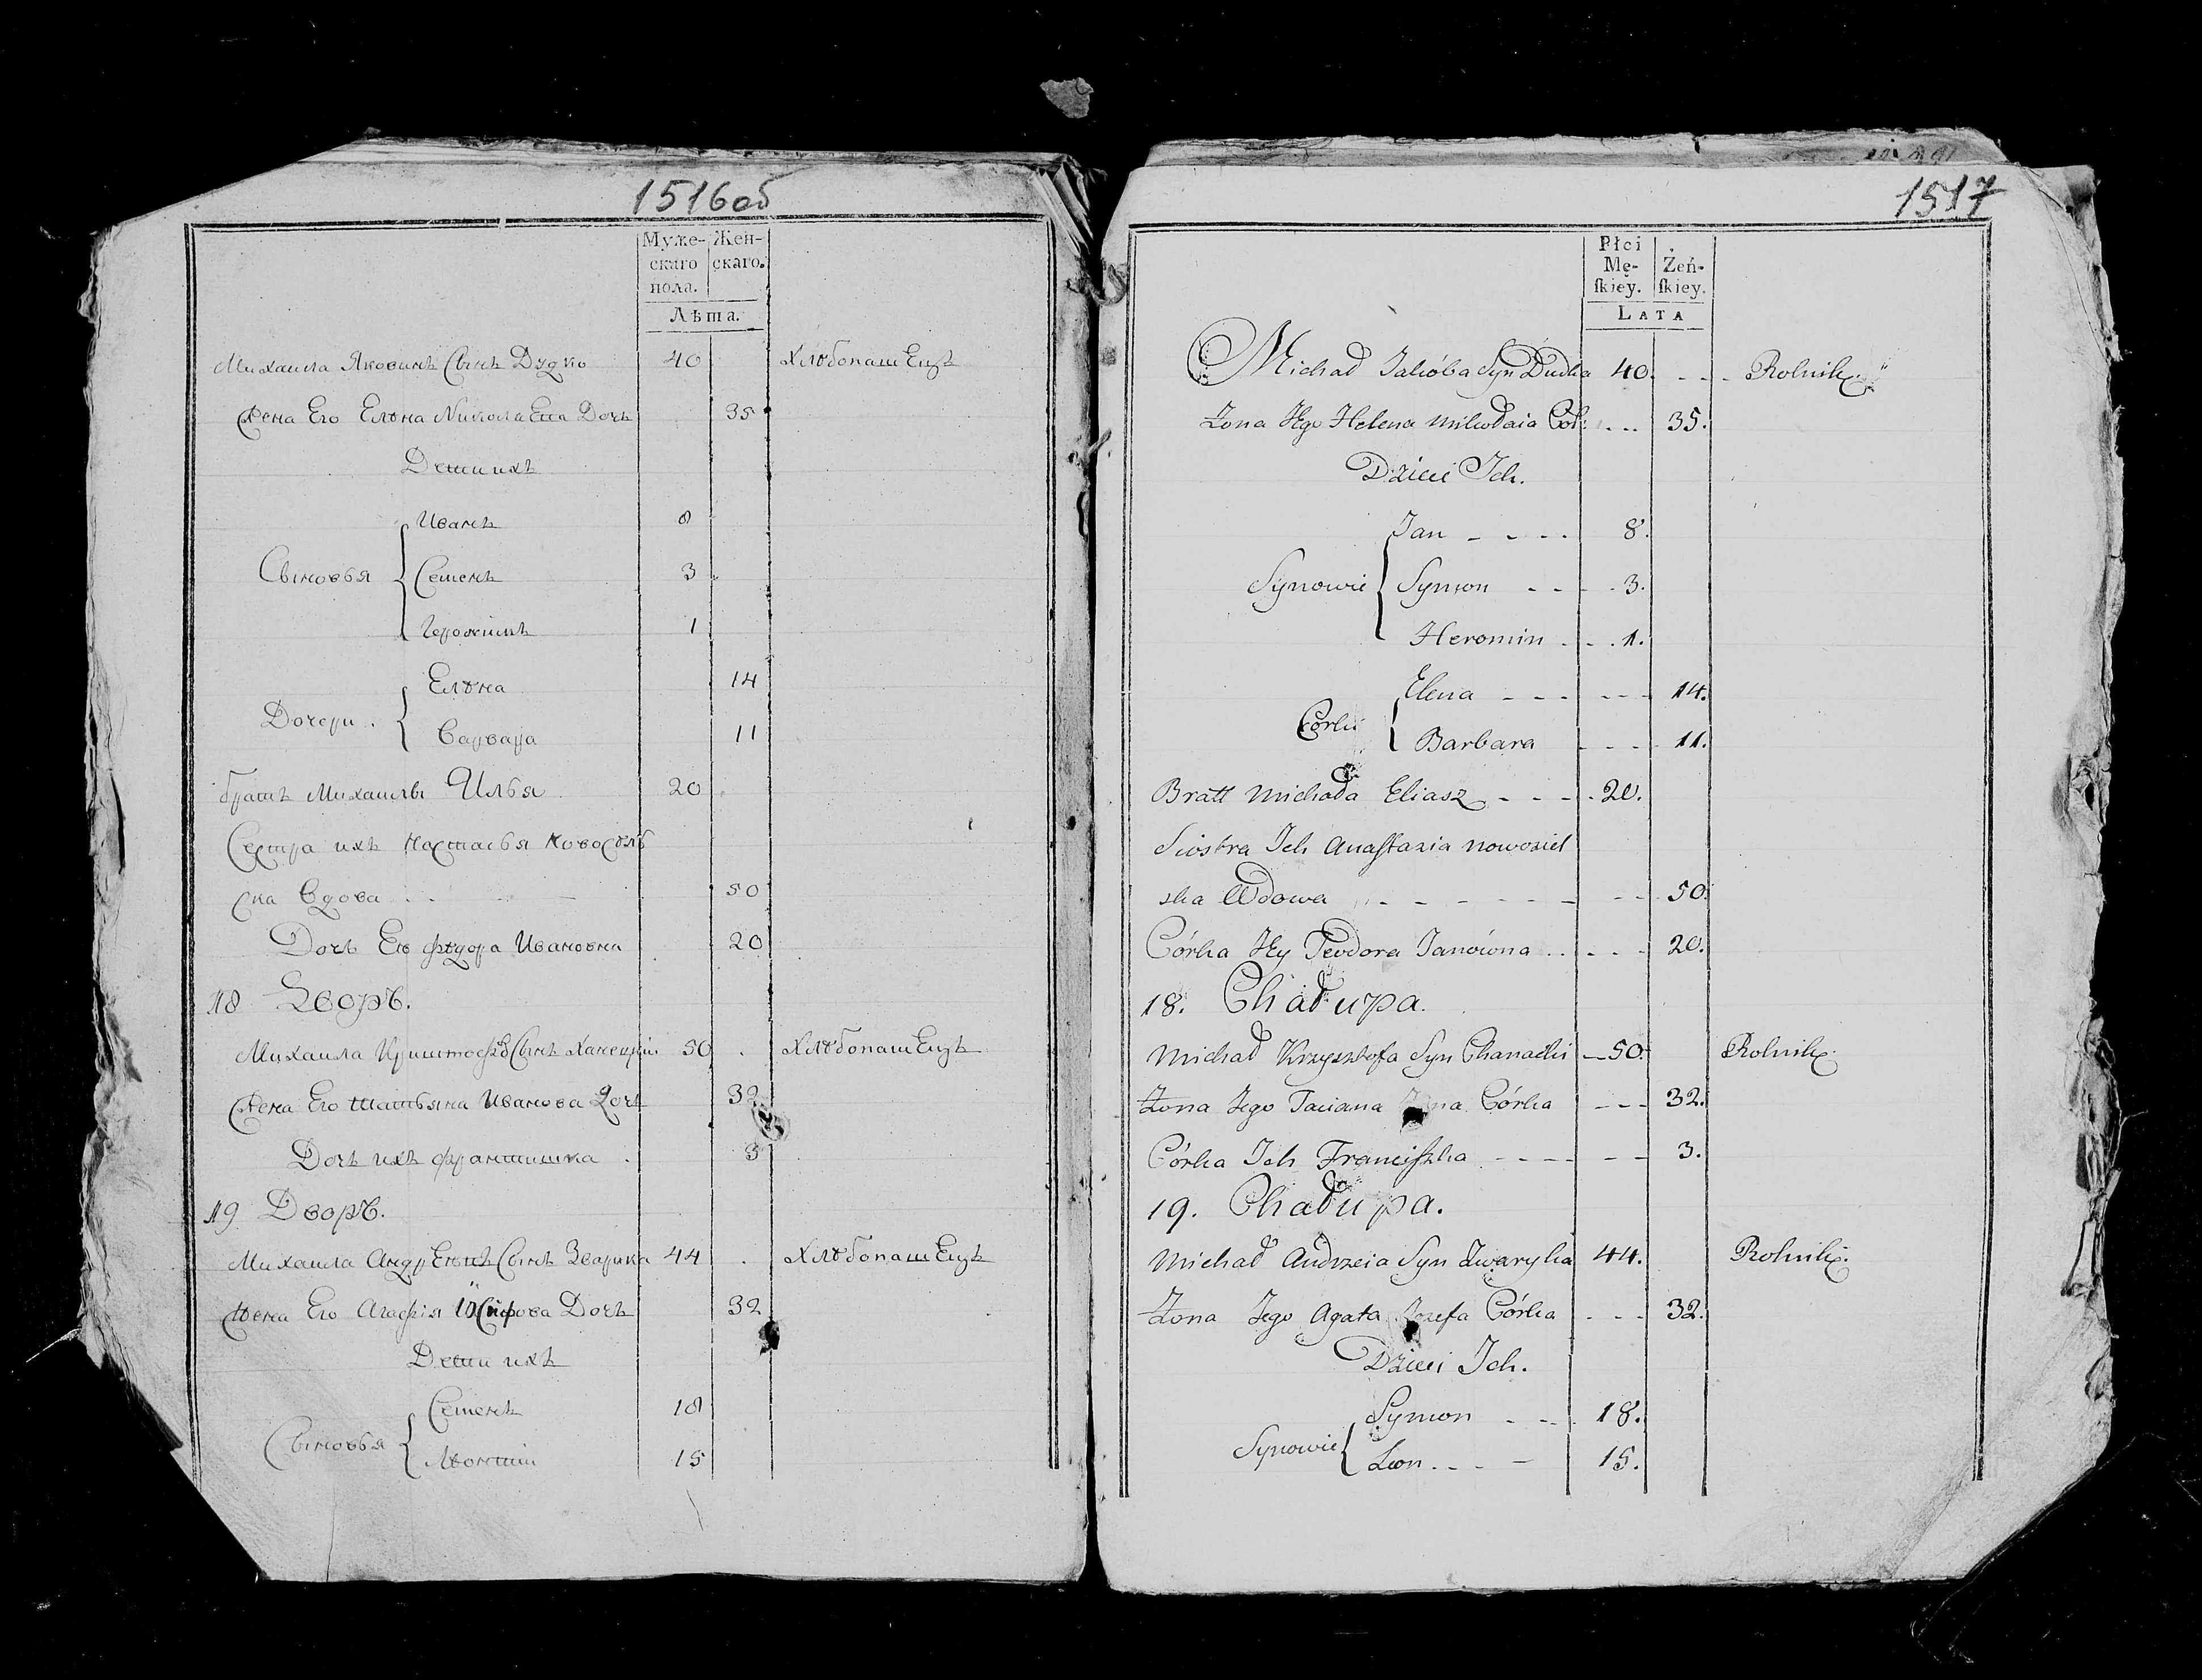 1516об
Муже- Жен-
скаго скаго.
пола.
Лѣта.
Михаила Яковивъ Сынъ Дудко 40 Хлѣбопашецъ
Жена Его Елѣна Николаева Дочь 35
Дети ихъ
Иванъ 8
Сыновья Семенъ 3
Геронимъ 1
Елѣна 14
Дочери Варвара 11
братъ Михаилы Илья 20
Сестра ихъ Настасья Новосѣль
ска Вдова 50
Дочь Ее Ѳедора Ивановна 20
18 Дворъ.
Михаила Криштофовъ Сынъ 50 Хлѣбопашецъ
Жена Его Татьяна Иванова Дочь 32
Дочь ихъ Францишка 3
19 Дворъ.
Михаила Андреевъ Сынъ Зварика 44 Хлѣбопашецъ
Жена Его Агафія Дочь 32
Дети ихъ
Семенъ 18
Сыновья Лѣонтий 15
1517
Płci
Mę- Żeń-
ſkiey. ſkiey.
LATA
Michał Jakóba Syn Dudka 40. Rolnik.
Żona Jego Helena Mikołaia Cór: 35.
Dzieci Ich.
Jan 8.
Synowie Symon 3.
Heromin 1.
Elena 14.
Córki Barbara 11.
Bratt Michała Eliasz 20.
Siostra Ich Anaſtazia Nowosiel
ska Wdowa 50.
Córka Jey Teodora Janówna 20.
18. Chałupa.
Michał Krzysztofa Syn Chanacki 50. Rolnik.
Żona Jego Taciana Córka 32.
Córka Ich Franciſzka 3.
19. Chałupa.
Michał Andrzeia Syn Zwaryka 44. Rolnik.
Żona Jego Agata Jozefa Córka 32.
Dzieci Ich.
Symon 18.
Synowie Leon 15.